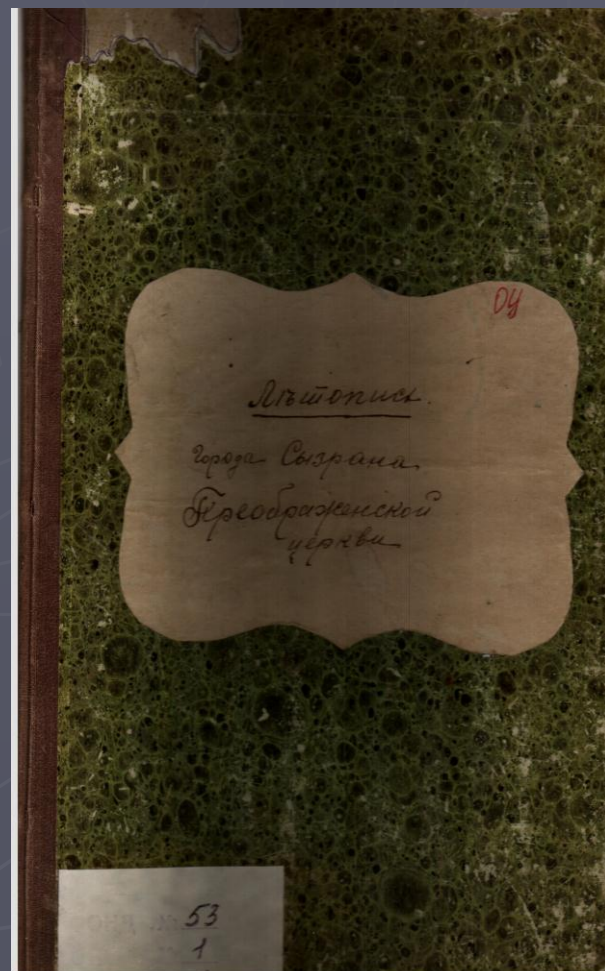 ОЦ
Лѣтопись.
города Сызрана
Преображенской
церкви
53
1